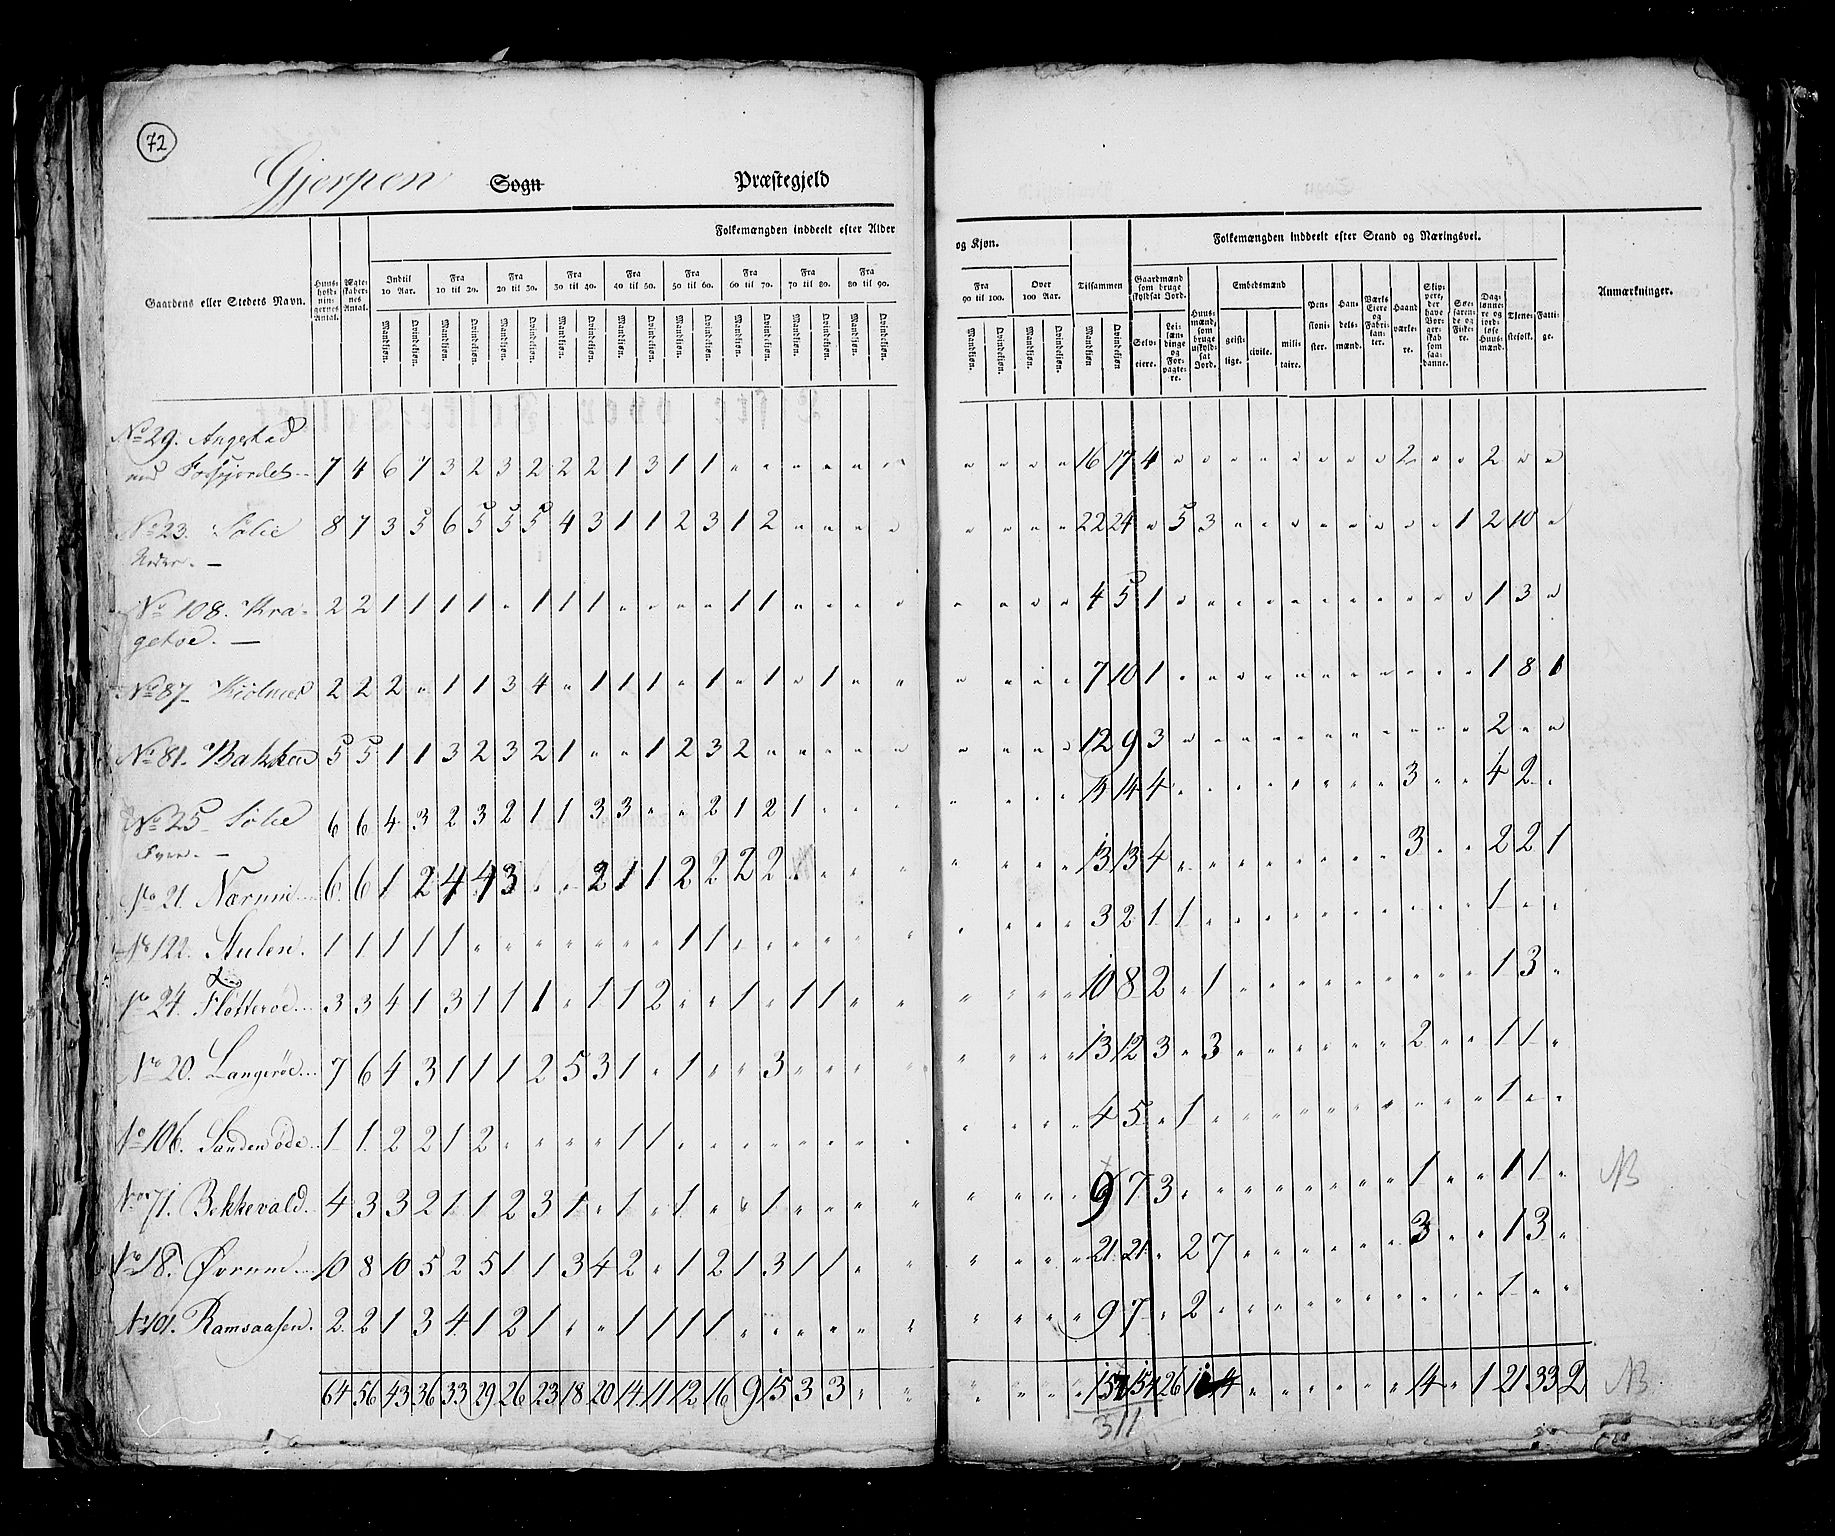 72
Gjerpen Sogn Præstegjeld
Folkemængden inddeelt efter Alder og Kjøn.
Folkemængden inddeelt efter Stand og Næringsvei.
Gaardens eller Stedets Navn.
Huus-holdningernes Antal.
Ægteskabernes Antal.
Indtil 10 Aar.
Fra 10 til 20.
Fra 20 til 30.
Fra 30 til 40.
Fra 40 til 50.
Fra 50 til 60.
Fra 60 til 70.
Fra 70 til 80.
Fra 80 til 90.
Fra 90 til 100.
Over 100 Aar.
Tilsammen
Gaardmænd som bruge skyldsat Jord.
Selveiere.
Leilændinge og Forpagtere.
Huusmænd, som bruge uskyldsat Jord.
Embedsmænd
geistlige.
civile.
militaire.
Pensionister.
Handelsmænd.
Værks Eiere og Fabrikanter.
Haandværkere.
Skippere, der have Borgerskab som saadanne.
Søefarende og Fiskere.
Daglønnere og jordløse Huusmænd.
Tienestefolk.
Fattige.
Anmærkninger.
Mandkjøn. Qvindekjøn. Mandkjøn. Qvindekjøn. Mandkjøn. Qvindekjøn. Mandkjøn. Qvindekjøn. Mandkjøn. Qvindekjøn. Mandkjøn. Qvindekjøn. Mandkjøn. Qvindekjøn. Mandkjøn. Qvindekjøn. Mandkjøn. Qvindekjøn. Mandkjøn. Qvindekjøn. Mandkjøn. Qvindekjøn. Mandkjøn Qvindekjøn
No 29. Angestad
med Fossjordet 7 4 6 7 3 2 3 2 2 2 1 3 1 1 " " " " " " " " " " 16 17 4 " " " " " " " " 2 " " 2 " "
No 23. Sølie 8 7 3 5 6 5 5 5 4 3 1 1 2 3 1 2 " " " " " " " " 22 24 " 5 3 " " " " " " " " 1 2 10 "
Neder. —
No 108. Kra- 2 2 1 1 1 1 " 1 1 1 " " " " 1 1 " " " " " " " " 4 5 1 " " " " " " " " " " " 1 3 "
getoe. —
No 87 Kiølnæs 2 2 2 " 1 1 3 4 " 1 1 1 " 1 " 1 " 1 " " " " " " 7 10 1 " " " " " " " " " " " 1 8 1
No 81. Bakken 5 5 1 1 3 2 3 2 1 " " 1 2 3 2 " " " " " " " " " 12 9 3 " " " " " " " " " " " 2 " "
No 25 Sølie 6 6 4 3 2 3 2 1 1 3 3 " " 2 1 2 1 " " " " " " " 14 14 4 " " " " " " " " 3 " " 4 2 "
No 21. Nærum 6 6 1 2 4 4 3 " " 2 1 1 2 2 2 2 " " " " " " " 13 13 4 " " " " " " " " 3 " " 2 2 1
No 122. Stulen. 1 1 1 1 1 " " " " " " " 1 1 " " " " " " " " " " 3 2 1 1 " " " " " " " " " " 1 " "
No 24. Flötteröe 3 3 4 1 3 1 1 1 " 1 1 2 " " 1 " 1 1 " " " " " " 10 8 2 " 1 " " " " " " " " " 1 3 "
No 20. Langeröe 7 6 4 3 1 1 1 2 5 3 1 " 1 " " 3 " " " " " " " " 13 12 3 " 3 " " " " " " 2 " " 1 1 "
No 106. Sandenöde 1 1 2 2 1 2 " " " " 1 1 " " " " " " " " " " " " 4 5 " 1 " " " " " " " " " " 1 " "
No 71. Bekkevold 4 3 3 2 1 1 2 3 1 " 1 " 1 " " 1 " " " " " " " " 9 7 3 " " " " " " " " 1 " " 1 1 " NB
No 18. Øvrum 10 8 10 5 2 5 1 1 3 4 2 " 1 2 1 3 1 1 " " " " " " 21 21 " 2 7 " " " " " " 3 " " 1 3 "
No 101. Ramsaasen. 2 2 1 3 4 1 2 1 " " 1 1 1 1 " " " " " " " " " " 9 7 " 2 " " " " " " " " " " 1 " "
64 56 43 36 33 29 26 23 18 20 14 11 12 16 9 15 3 3 " " " " " " 157 154 26 14 " " " " " " 14 " 1 21 33 2 NB
311